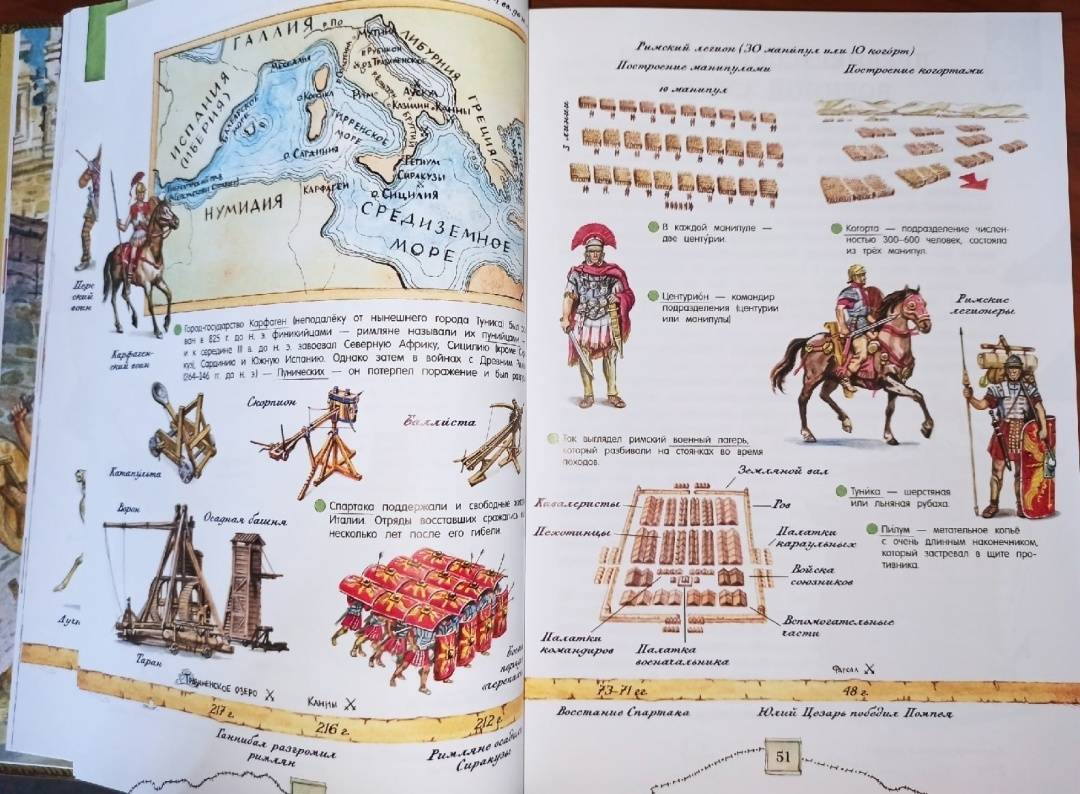 ГАЛЛИЯ
р. По
ЛИБУРНИЯ
ИСПАНИЯ
(ИБЕРИЯ)
ГРЕЦИЯ
ТИРРЕНСКОЕ
МОРЕ
о. САРДИНИЯ
КАРФАГЕН
НУМИДИЯ
РЕГИУМ
СИРАКУЗЫ
о. СИЦИЛИЯ
СРЕДИЗЕМНОЕ
МОРЕ
Карфаген-
ский воин
Город-государство Карфаген (неподалёку от нынешнего города Туниса) был
ван в 825 г. до н. э. финикийцами — римляне называли их пунийцами —
и к середине III в. до н. э. завоевал Северную Африку, Сицилию (кроме
куз), Сардинию и Южную Испанию. Однако затем в войнах с Древним
(264–146 гг. до н. э.) — Пунических — он потерпел поражение и был
Скорпион
Баллиста
Катапульта
Ворон
Осадная башня
Спартака поддержали и свободные
Италии. Отряды восставших сражались
несколько лет после его гибели.
Таран
ТРАЗИМЕНСКОЕ ОЗЕРО
КАННЫ
217 г.
216 г.
212 г.
Ганнибал разгромил
римлян
Римляне осадили
Сиракузы
Римский легион (30 манипул или 10 когорт)
Построение манипулами
Построение когортами
10 манипул
3 линии
В каждой манипуле —
две центурии.
Когорта — подразделение числен-
ностью 300–600 человек, состояла
из трёх манипул.
Центурион — командир
подразделения (центурии
или манипулы)
Римские
легионеры
Так выглядел римский военный лагерь,
который разбивали на стоянках во время
походов.
Земляной вал
Кавалеристы
Ров
Пехотинцы
Палатки
караульных
Войска
союзников
Вспомогательные
части
Палатки
командиров
Палатка
военачальника
Туника — шерстяная
или льняная рубаха.
Пилум — метательное копьё
с очень длинным наконечником,
который застревал в щите про-
тивника.
ФАРСАЛ
73–71 гг.
48 г.
Восстание Спартака
Юлий Цезарь победил Помпея
51